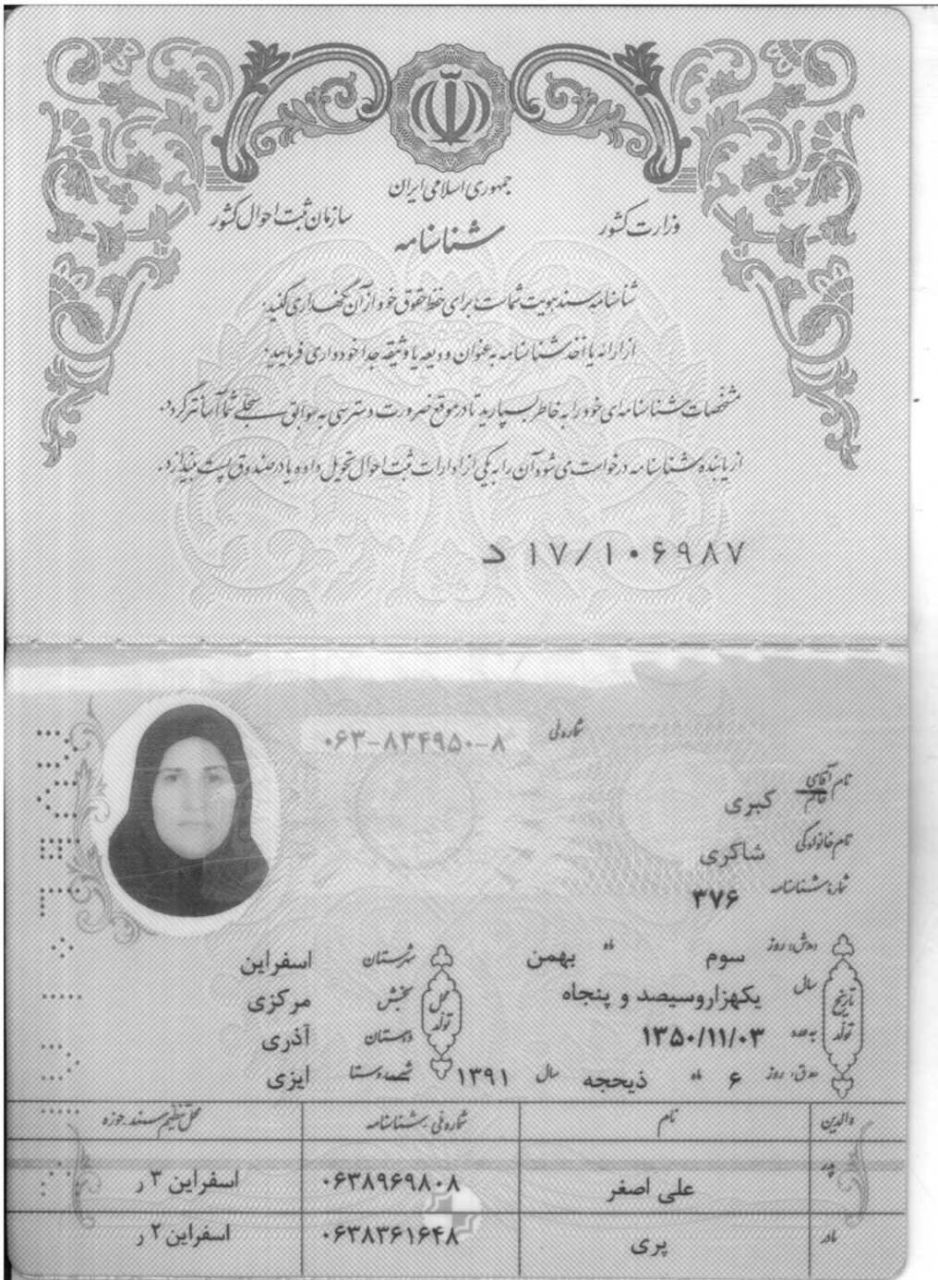 جمهوری اسلامی ایران
وزارت کشور
سازمان ثبت احوال کشور
شناسنامه
شناسنامه سند هویت شماست برای حفظ حقوق خود از آن نگهداری کنید.
از ارائه یا اخذ شناسنامه به عنوان ودیعه یا وثیقه جدا خودداری فرمایید.
مشخصات شناسنامه‌ای خود را به خاطر بسپارید تا در موقع ضرورت دسترسی به سوابق سجلی شما آسانتر گردد.
از یابنده شناسنامه درخواست می شود آن را به یکی از ادارات ثبت احوال تحویل داده یا در صندوق پست بیندازد.
د ۱۷/۱۰۶۹۸۷
شماره ملی ۰۶۳-۸۳۴۹۵۰-۸
نام آقای خانم کبری
نام خانوادگی شاکری
شماره شناسنامه ۳۷۶
تاریخ تولد
ه‍.ش: روز سوم ماه بهمن
سال یکهزاروسیصد و پنجاه
به عدد ۱۳۵۰/۱۱/۰۳
ه‍.ق: روز ۶ ماه ذیحجه سال ۱۳۹۱
محل تولد
شهرستان اسفراین
بخش مرکزی
دهستان آذری
شهر، روستا ایزی
والدین نام شماره ملی / شناسنامه محل تنظیم سند، حوزه
پدر علی اصغر ۰۶۳۸۹۶۹۸۰۸ اسفراین ۳ ر
مادر پری ۰۶۳۸۳۶۱۶۴۸ اسفراین ۲ ر